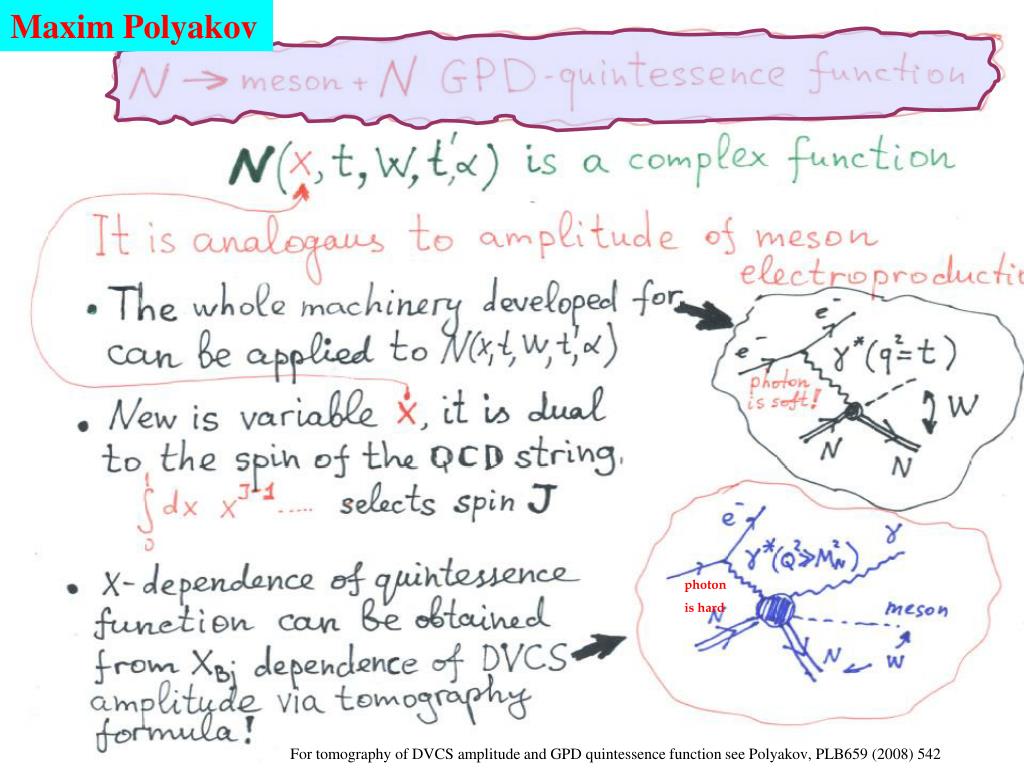 Maxim Polyakov
N → meson + N GPD-quintessence function
N(x, t, W, t', α) is a complex function
It is analogous to amplitude of meson
electroproductio
• The whole machinery developed for
can be applied to N(x, t, W, t', α)
• New is variable x, it is dual
to the spin of the QCD string.
∫₀¹ dx x^{J-1} ..... selects spin J
• X-dependence of quintessence
function can be obtained
from X_Bj dependence of DVCS
amplitude via tomography
formula!
e⁻
e⁻
γ*(q²=t)
photon
is soft!
W
N
N
e⁻
γ
γ*(Q²≫M_N²)
photon
is hard
N
meson
N
W
For tomography of DVCS amplitude and GPD quintessence function see Polyakov, PLB659 (2008) 542